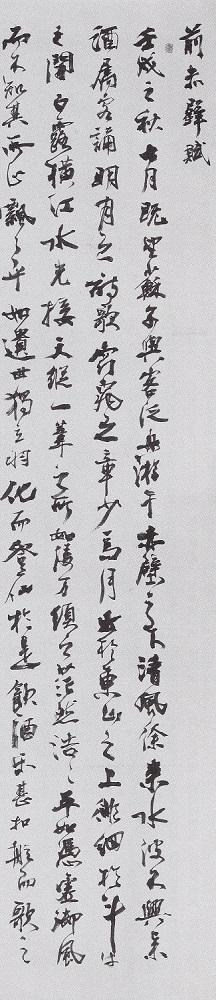 前赤壁賦
壬戌之秋七月既望蘇子與客泛舟游于赤壁之下清風徐來水波不興擧
酒屬客誦明月之詩歌窈窕之章少焉月出於東山之上徘徊於斗牛
之間白露橫江水光接天縱一葦之所如凌万頃之茫然浩〻乎如憑虛御風
而不知其所止飄〻乎如遺世獨立羽化而登仙於是飲酒樂甚扣舷而歌之